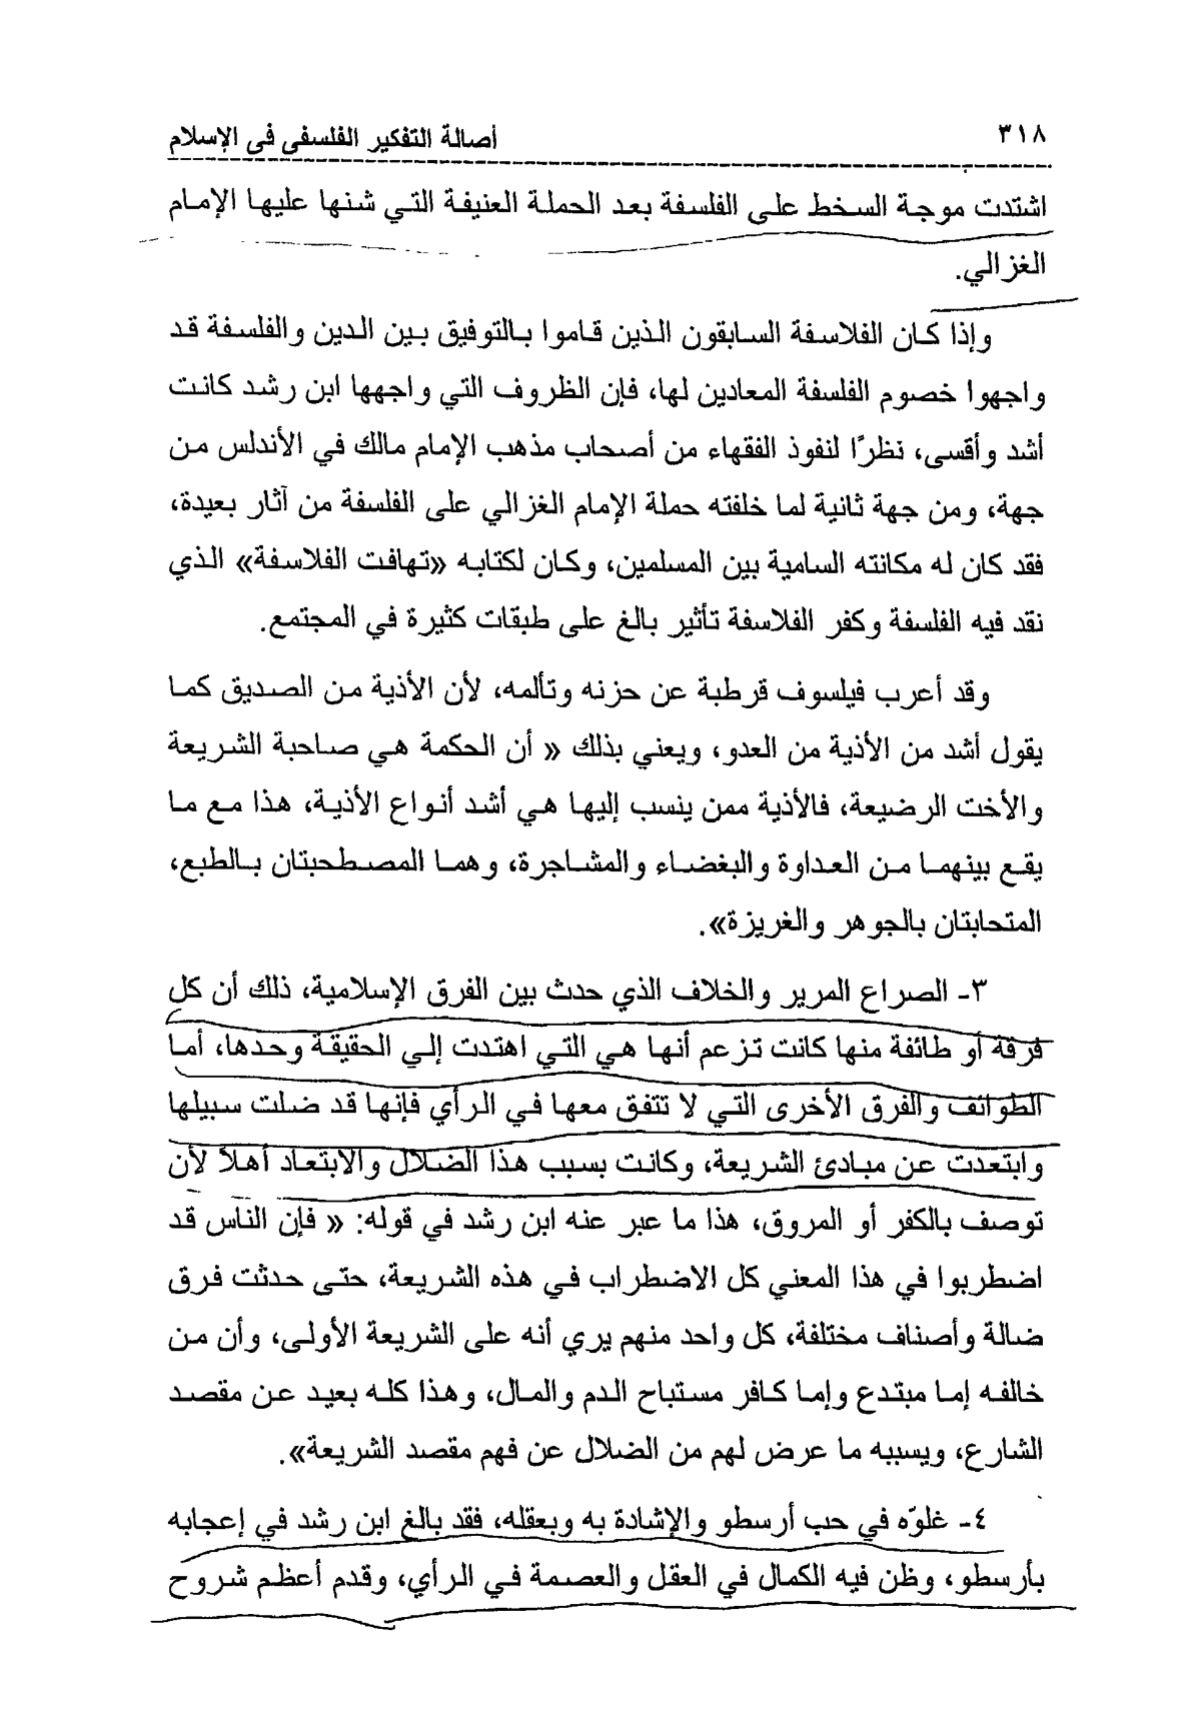 ٣١٨
أصالة التفكير الفلسفى فى الإسلام
اشتدت موجة السخط على الفلسفة بعد الحملة العنيفة التي شنها عليها الإمام
الغزالي.
وإذا كان الفلاسفة السابقون الذين قاموا بالتوفيق بين الدين والفلسفة قد
واجهوا خصوم الفلسفة المعادين لها، فإن الظروف التي واجهها ابن رشد كانت
أشد وأقسى، نظرًا لنفوذ الفقهاء من أصحاب مذهب الإمام مالك في الأندلس من
جهة، ومن جهة ثانية لما خلفته حملة الإمام الغزالي على الفلسفة من آثار بعيدة،
فقد كان له مكانته السامية بين المسلمين، وكان لكتابه «تهافت الفلاسفة» الذي
نقد فيه الفلسفة وكفر الفلاسفة تأثير بالغ على طبقات كثيرة في المجتمع.
وقد أعرب فيلسوف قرطبة عن حزنه وتألمه، لأن الأذية من الصديق كما
يقول أشد من الأذية من العدو، ويعني بذلك « أن الحكمة هي صاحبة الشريعة
والأخت الرضيعة، فالأذية ممن ينسب إليها هي أشد أنواع الأذية، هذا مع ما
يقع بينهما من العداوة والبغضاء والمشاجرة، وهما المصطحبتان بالطبع،
المتحابتان بالجوهر والغريزة».
٣- الصراع المرير والخلاف الذي حدث بين الفرق الإسلامية، ذلك أن كل
فرقة أو طائفة منها كانت تزعم أنها هي التي اهتدت إلي الحقيقة وحدها، أما
الطوائف والفرق الأخرى التي لا تتفق معها في الرأي فإنها قد ضلت سبيلها
وابتعدت عن مبادئ الشريعة، وكانت بسبب هذا الضلال والابتعاد أهلاً لأن
توصف بالكفر أو المروق، هذا ما عبر عنه ابن رشد في قوله: « فإن الناس قد
اضطربوا في هذا المعني كل الاضطراب في هذه الشريعة، حتى حدثت فرق
ضالة وأصناف مختلفة، كل واحد منهم يري أنه على الشريعة الأولى، وأن من
خالفه إما مبتدع وإما كافر مستباح الدم والمال، وهذا كله بعيد عن مقصد
الشارع، ويسببه ما عرض لهم من الضلال عن فهم مقصد الشريعة».
٤- غلوّه في حب أرسطو والإشادة به وبعقله، فقد بالغ ابن رشد في إعجابه
بأرسطو، وظن فيه الكمال في العقل والعصمة في الرأي، وقدم أعظم شروح